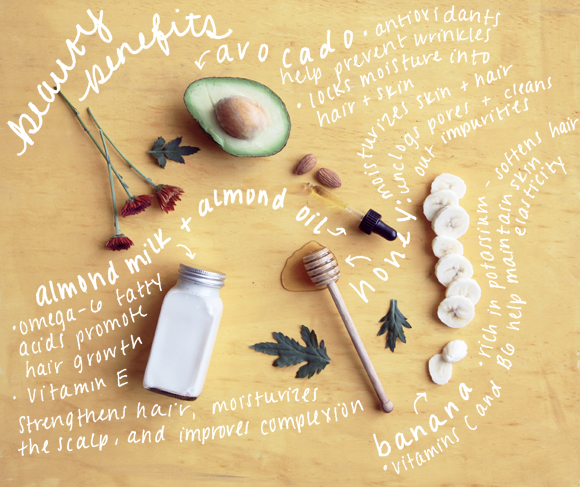 beauty
benefits
avocado • antioxidants
help prevent wrinkles
• locks moisture into
hair + skin
almond milk + almond oil
• omega-6 fatty
acids promote
hair growth
• vitamin E
strengthens hair, moisturizes
the scalp, and improves complexion
honey
• moisturizes skin + hair
• unclogs pores + cleans
out impurities
banana
• vitamins C and B6 help maintain skin
elasticity
• rich in potassium - softens hair